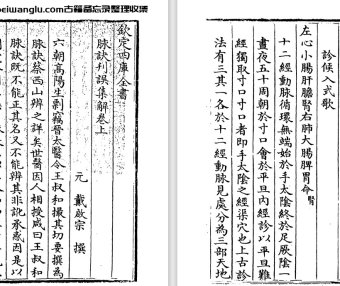 beiwanglu.com古籍备忘录整理收集
欽定四庫全書
脉訣刋誤集解卷上
元 戴啟宗 撰
六朝高陽生剽竊晉太醫令王叔和撮其切要撰為
脉訣蔡西山辨之詳矣世醫因人相授咸曰王叔和
脉訣既不能正其名又不能辨其非訛承惑因是以
診候入式歌
左心小腸肝膽腎右肺大腸脾胃命腎
十二經動脉循環無端始於手太陰終於足厥陰一
晝夜五十周朝於寸口會於平旦内經診以平旦難
經獨取寸口寸口者即手太陰之經渠穴也上古診
法有三其一各於十二經動脉見處分為三部天地